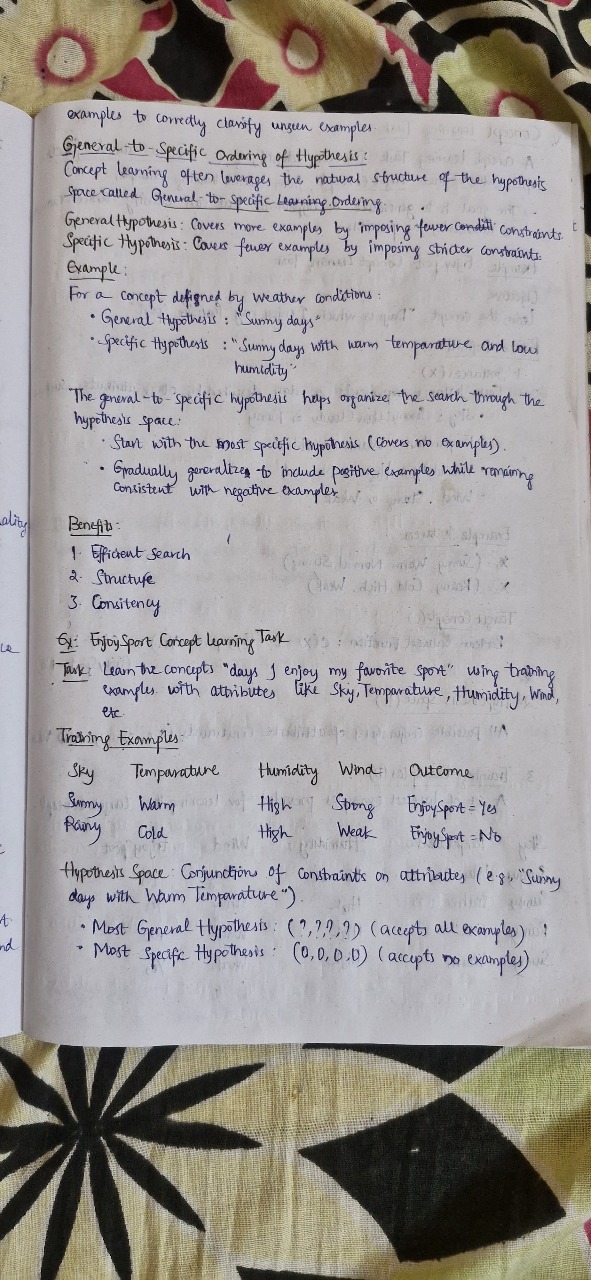 examples to correctly clarify unseen examples.
General-to-Specific Ordering of Hypothesis:
Concept learning often leverages the natural structure of the hypothesis
space called General-to-Specific Learning Ordering.
General Hypothesis: Covers more examples by imposing fewer conditi constraints.
Specific Hypothesis: Covers fewer examples by imposing stricter constraints.
Example:
For a concept defigned by weather conditions:
• General Hypothesis: "Sunny days"
• Specific Hypothesis: "Sunny days with warm temparature and low
humidity"
The general-to-specific hypothesis helps organize the search through the
hypothesis space:
• Start with the most specific hypothesis (covers no examples).
• Gradually generalizes to include positive examples while remaining
consistent with negative examples.
ality
Benefits:
1. Efficient Search
2. Structure
3. Consitency
Ex: EnjoySport Concept Learning Task
Task: Learn the concepts "days I enjoy my favorite sport" using training
examples with attributes like Sky, Temparature, Humidity, Wind,
etc
Training Examples:
Sky Temparature Humidity Wind Outcome
Sunny Warm High Strong EnjoySport = Yes
Rainy Cold High Weak EnjoySport = No
Hypothesis Space: Conjunction of constraints on attributes (e.g., "Sunny
days with Warm Temparature").
• Most General Hypothesis: (?,?,?,?) (accepts all examples)
• Most Specific Hypothesis: (0,0,0,0) (accepts no examples)